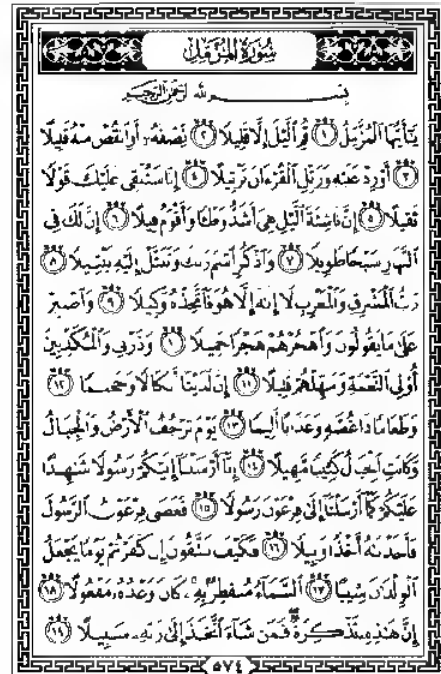 سُورَةُ المُزَّمِّل
بِسْمِ اللَّهِ الرَّحْمَٰنِ الرَّحِيمِ
يَٰٓأَيُّهَا ٱلْمُزَّمِّلُ ١ قُمِ ٱلَّيْلَ إِلَّا قَلِيلًا ٢ نِّصْفَهُۥٓ أَوِ ٱنقُصْ مِنْهُ قَلِيلًا
٣ أَوْ زِدْ عَلَيْهِ وَرَتِّلِ ٱلْقُرْءَانَ تَرْتِيلًا ٤ إِنَّا سَنُلْقِى عَلَيْكَ قَوْلًا
ثَقِيلًا ٥ إِنَّ نَاشِئَةَ ٱلَّيْلِ هِىَ أَشَدُّ وَطْـًٔا وَأَقْوَمُ قِيلًا ٦ إِنَّ لَكَ فِى
ٱلنَّهَارِ سَبْحًا طَوِيلًا ٧ وَٱذْكُرِ ٱسْمَ رَبِّكَ وَتَبَتَّلْ إِلَيْهِ تَبْتِيلًا ٨
رَّبُّ ٱلْمَشْرِقِ وَٱلْمَغْرِبِ لَآ إِلَٰهَ إِلَّا هُوَ فَٱتَّخِذْهُ وَكِيلًا ٩ وَٱصْبِرْ
عَلَىٰ مَا يَقُولُونَ وَٱهْجُرْهُمْ هَجْرًا جَمِيلًا ١٠ وَذَرْنِى وَٱلْمُكَذِّبِينَ
أُو۟لِى ٱلنَّعْمَةِ وَمَهِّلْهُمْ قَلِيلًا ١١ إِنَّ لَدَيْنَآ أَنكَالًا وَجَحِيمًا ١٢
وَطَعَامًا ذَا غُصَّةٍ وَعَذَابًا أَلِيمًا ١٣ يَوْمَ تَرْجُفُ ٱلْأَرْضُ وَٱلْجِبَالُ
وَكَانَتِ ٱلْجِبَالُ كَثِيبًا مَّهِيلًا ١٤ إِنَّآ أَرْسَلْنَآ إِلَيْكُمْ رَسُولًا شَٰهِدًا
عَلَيْكُمْ كَمَآ أَرْسَلْنَآ إِلَىٰ فِرْعَوْنَ رَسُولًا ١٥ فَعَصَىٰ فِرْعَوْنُ ٱلرَّسُولَ
فَأَخَذْنَٰهُ أَخْذًا وَبِيلًا ١٦ فَكَيْفَ تَتَّقُونَ إِن كَفَرْتُمْ يَوْمًا يَجْعَلُ
ٱلْوِلْدَٰنَ شِيبًا ١٧ ٱلسَّمَآءُ مُنفَطِرٌۢ بِهِۦ كَانَ وَعْدُهُۥ مَفْعُولًا ١٨
إِنَّ هَٰذِهِۦ تَذْكِرَةٌ فَمَن شَآءَ ٱتَّخَذَ إِلَىٰ رَبِّهِۦ سَبِيلًا ١٩
٥٧٤